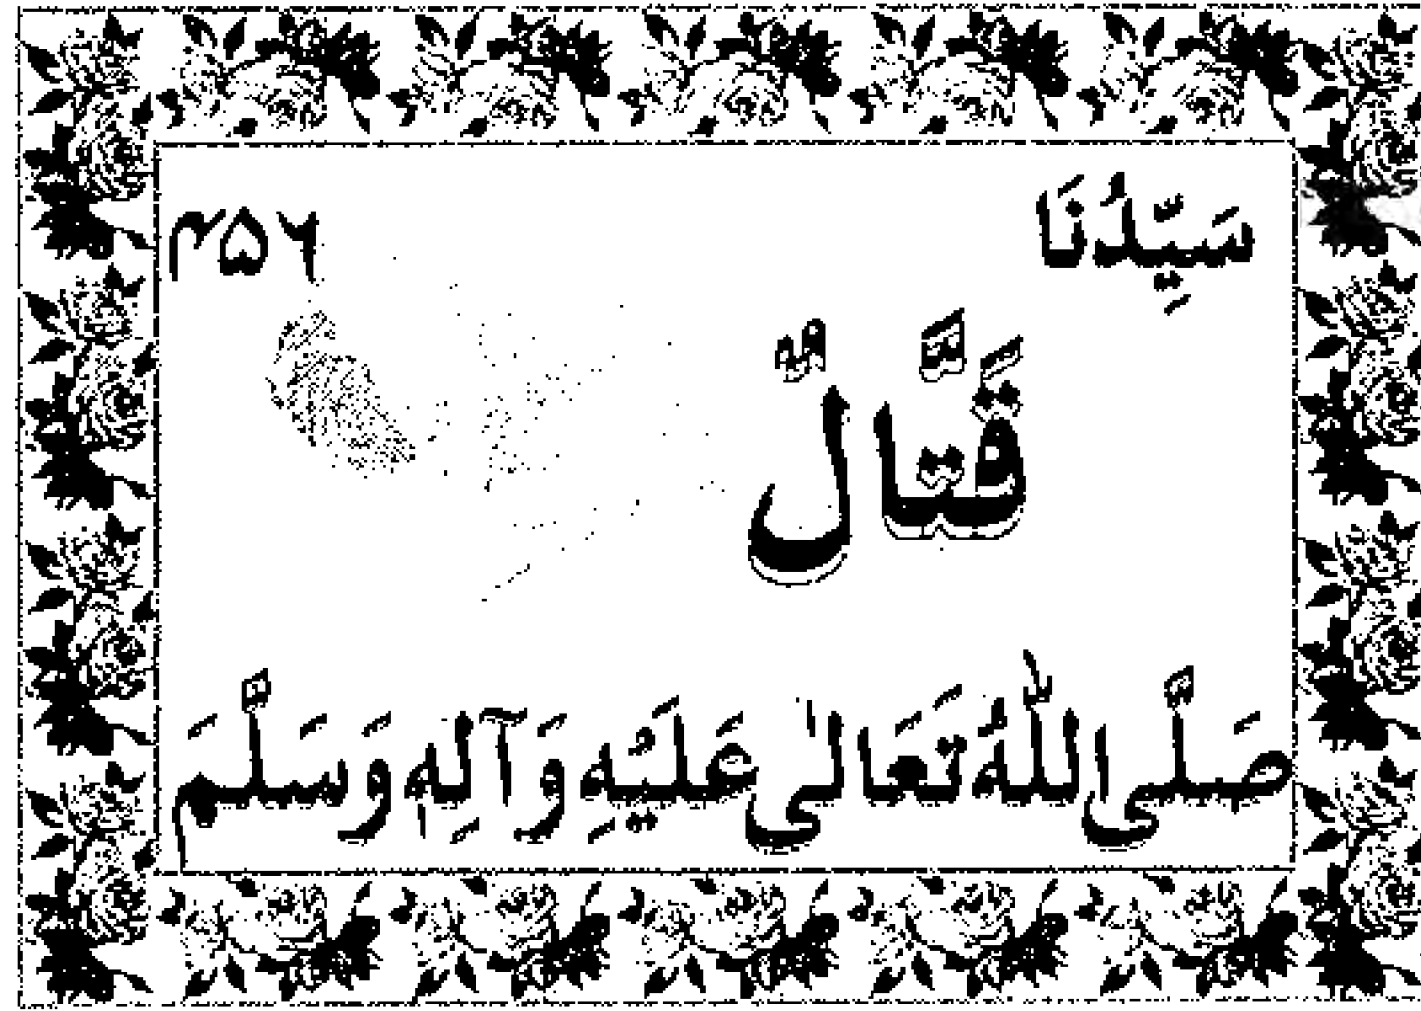 سَيِّدُنَا ۴۵۶
قَتَّالٌ
صَلَّى اللّٰهُ تَعَالٰى عَلَيْهِ وَآلِهٖ وَسَلَّمَ